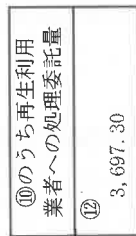 ⑩のうち再生利用
業者への処理委託量
⑫
3,697.30